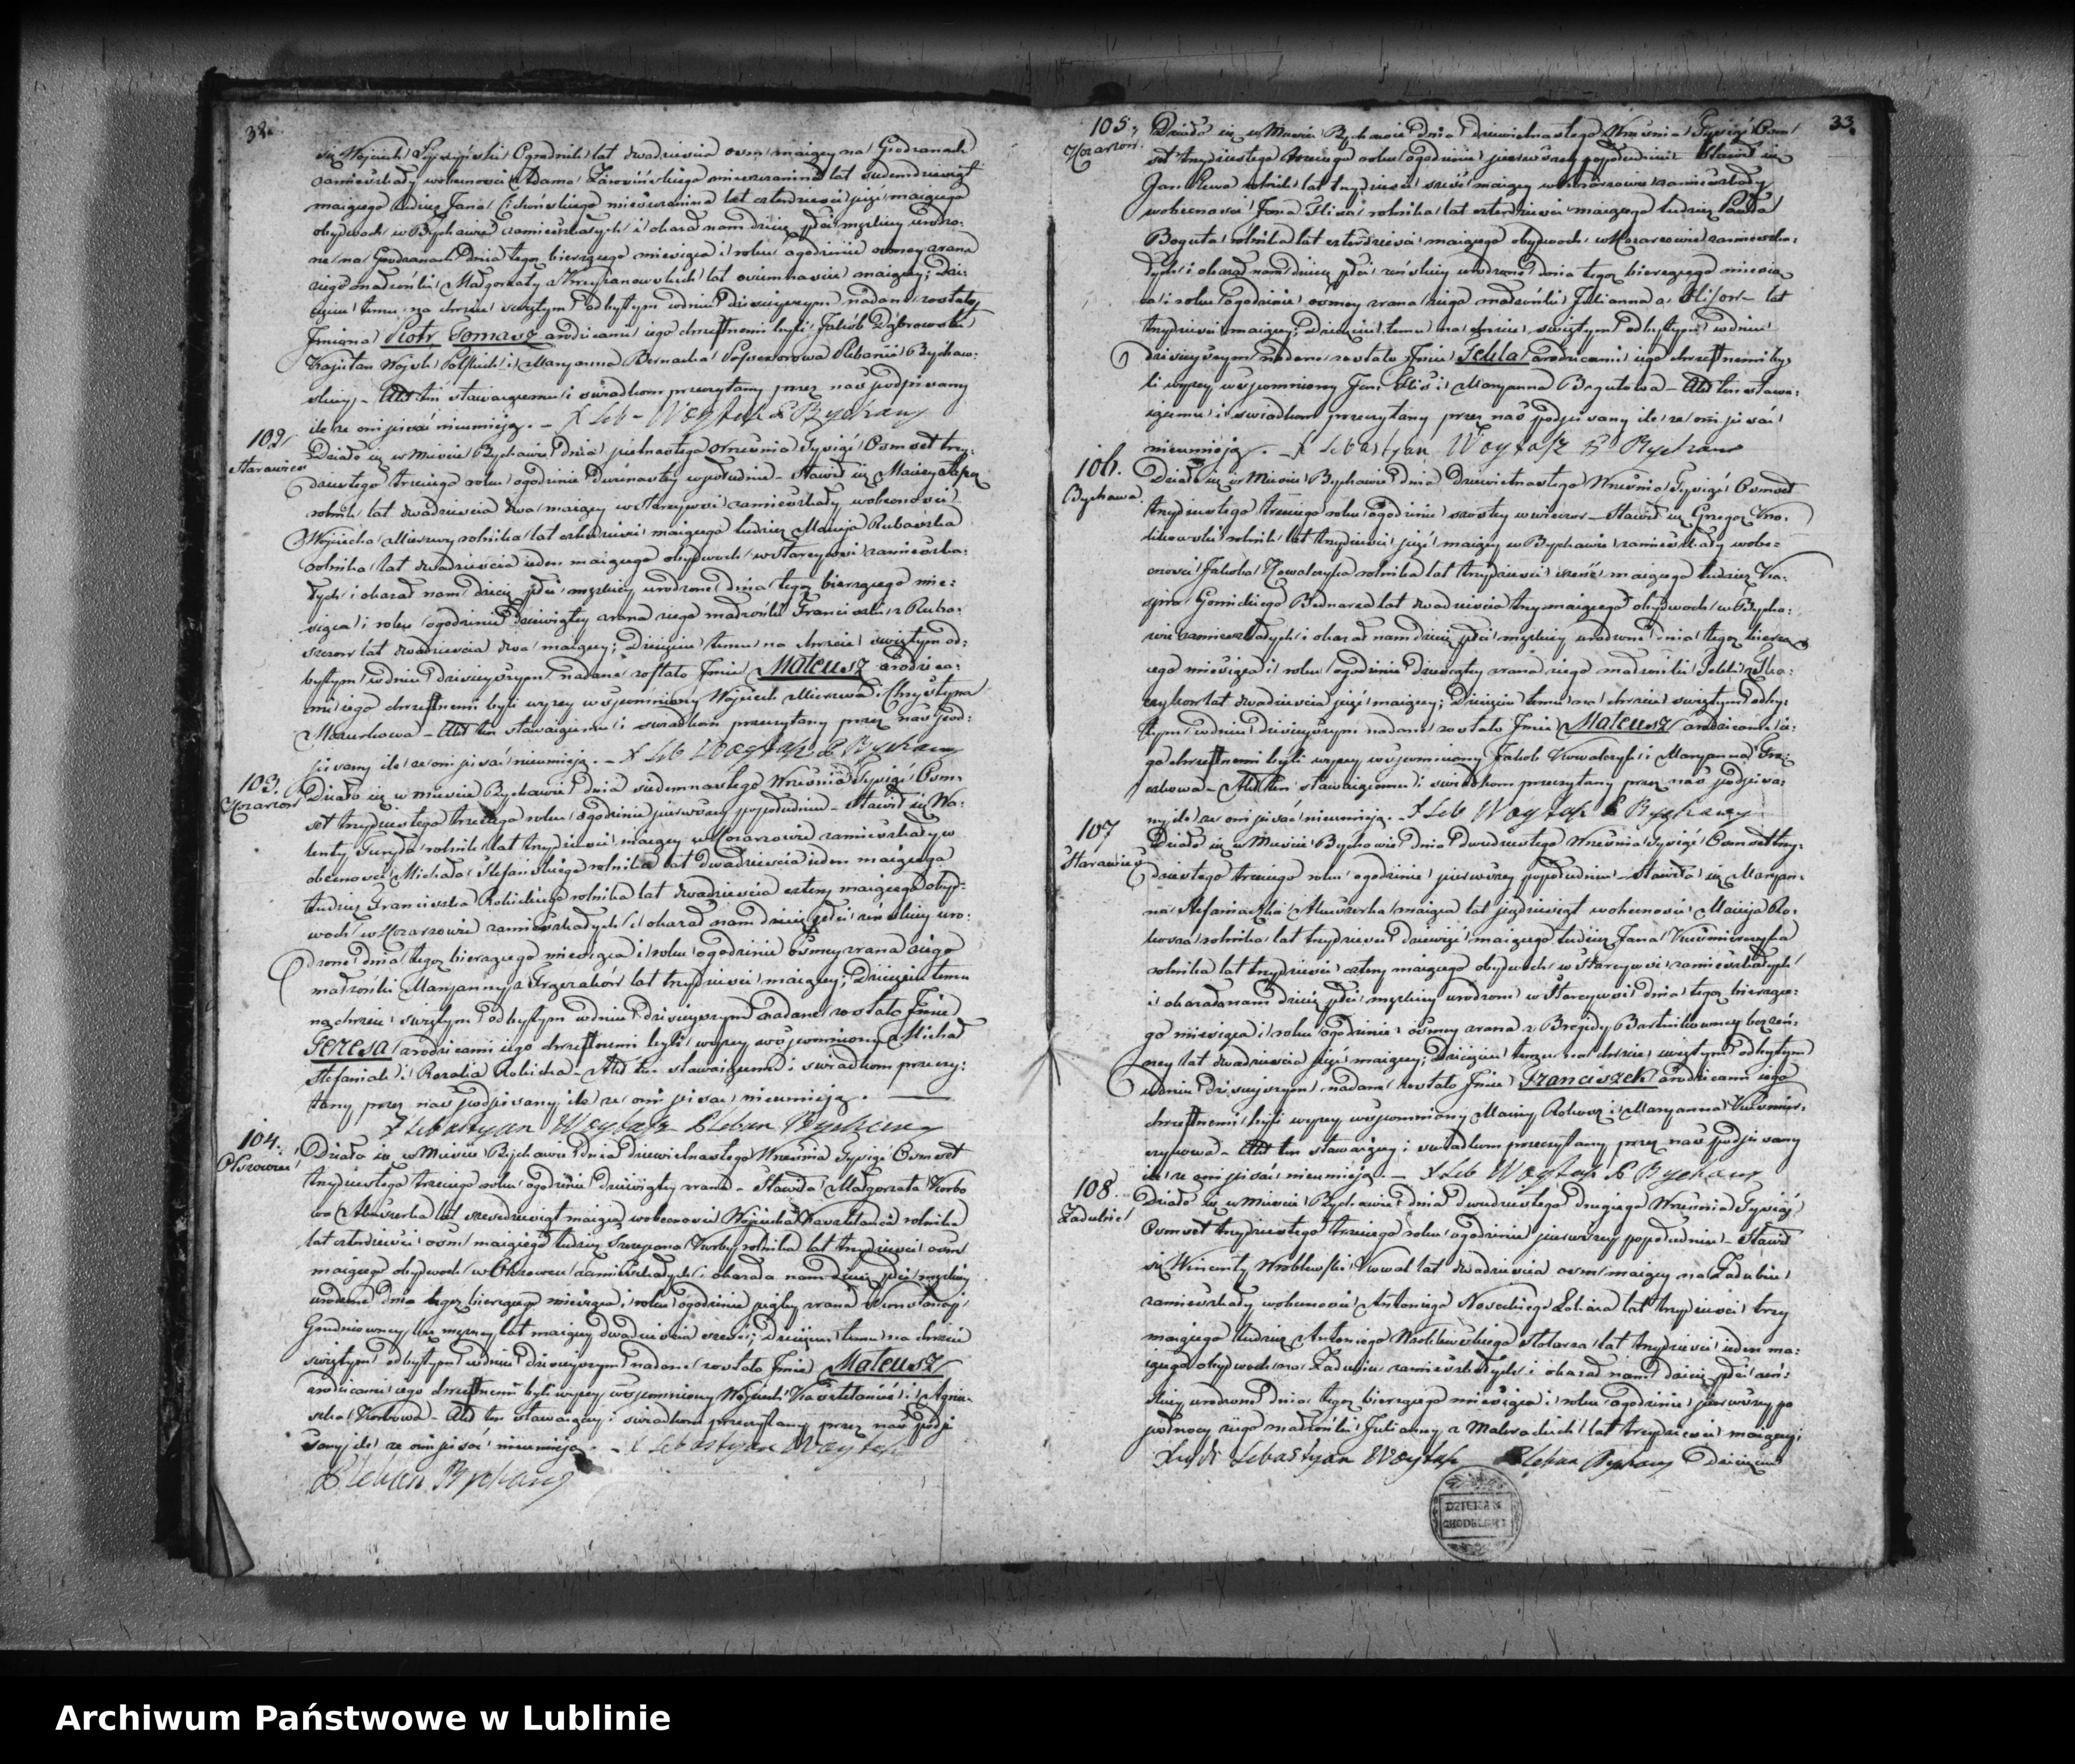 32.
się Woyciech Ogrodnik lat dwadzieścia osm maiący na Grodzanach
zamieszkały w obecności Adama mieszczanina lat siedmdziesiąt
maiącego tudzież Jana mieszczanina lat czterdzieści pięć maiącego
obydwoch w Bychawie zamieszkałych i okazał nam dziecię płci męzkiey urodzo:
ne na Grodzanach dnia tegoż bieżącego miesiąca i roku o godzinie osmey zrana
z iego małżonki Małgorzaty z Krzyżanowskich lat osiemnaście maiącey; Dzie:
cięciu temu na chrzcie świętym odbytym w dniu dzisieyszym nadane zostały
Imiona Piotr Tomasz a rodzicami iego chrzestnemi byli Jakób Dąbrowski
Kapitan Woysk Polskich i Maryanna Plebanii Bychaw:
skiey – Akt ten stawaiącemu i świadkom przeczytany przez nas podpisany
ile że oni pisać nieumieią. – X Seb – Woytaß P Bychawy
102
Starawieś
Działo się w Mieście Bychawie dnia piętnastego Września Tysiąc Osmset trzy:
dziestego trzeciego roku o godzinie dwunastey w południe – Stawił się Maciey
rolnik lat dwadzieścia dwa maiący w Stareywsi zamieszkały w obecności
Woyciecha Mierzwy rolnika lat czterdzieści maiącego tudzież Macieja
rolnika lat dwadzieścia ieden maiącego obydwoch w Stareywsi zamieszka:
łych i okazał nam dziecię płci męzkiey urodzone dnia tegoż bieżącego mie:
siąca i roku o godzinie dziewiątey zrana z iego małżonki Franciszki z
lat dwadzieścia dwa maiącey; Dziecięciu temu na chrzcie świętym od:
bytym w dniu dzisieyszym nadane zostało Imie Mateusz a rodzica:
mi iego chrzestnemi byli wyżey wspomniony Woyciech Mierzwa i Chrystyna
Mazurkowa – Akt ten stawaiącemu i świadkom przeczytany przez nas pod:
pisany ile że oni pisać nieumieią. – X Seb Woytaß P Bychawy
103.
Kozarzow
Działo się w Mieście Bychawie dnia siedemnastego Września Tysiąc Osm:
set trzydziestego trzeciego roku o godzinie pierwszey popołudniu – Stawił się Wa:
lenty rolnik lat trzydzieści maiący w Kozarzowie zamieszkały w
obecności Michała Stefańskiego rolnika lat dwadzieścia ieden maiącego
tudzież Franciszka Robickiego rolnika lat dwadzieścia cztery maiącego obyd:
woch w Kozarzowie zamieszkałych i okazał nam dziecię płci żeńskiey uro:
dzone dnia tegoż bieżącego miesiąca i roku o godzinie osmey zrana z iego
małżonki Maryanny z lat trzydzieści maiącey; Dziecięciu temu
na chrzcie świętym odbytym w dniu dzisieyszym nadane zostało Imie
Teresa a rodzicami iego chrzestnemi byli wyżey wspomniony Michał
Stefaniak i Rozalia Robicka – Akt ten stawaiącemu i świadkom przeczy:
tany przez nas podpisany ile że oni pisać nieumieią. –
X Sebastyan Woytaß Pleban Bychawy
104.
Olszowiec
Działo się w Mieście Bychawie dnia dziewiętnastego Września Tysiąc Osmset
trzydziestego trzeciego roku o godzinie dziewiątey zrana – Stawiła Małgorzata Korbo
wa Akuszerka lat sześćdziesiąt maiąca w obecności Woyciecha rolnika
lat czterdzieści osm maiącego tudzież Szczepana Korby rolnika lat trzydzieści osm
maiącego obydwoch w Olszowcu zamieszkałych i okazała nam dziecię płci męzkiey
urodzone dnia tegoż bieżącego miesiąca i roku o godzinie piątey zrana z Konstancyi
lat maiącey dwadzieścia sześć; Dziecięciu temu na chrzcie
świętym odbytym w dniu dzisieyszym nadane zostało Imie Mateusz
a rodzicami iego chrzestnemi byli wyżey wspomniony Woyciech i Agnie:
szka Korbowa – Akt ten stawaiącey i świadkom przeczytany przez nas podpi
sany ile że oni pisać nieumieią. – X Sebastyan Woytaß
Pleban Bychawy
33.
105.
Kozarzow.
Działo się w Mieście Bychawie dnia dziewiętnastego Września Tysiąc Osm
set trzydziestego trzeciego roku o godzinie pierwszey popołudniu Stawił się
Jan rolnik lat trzydzieści sześć maiący w Kozarzowie zamieszkały
w obecności Jana rolnika lat czterdzieści maiącego tudzież Pawła
Boguta rolnika lat czterdzieści maiącego obydwoch w Kozarzowie zamieszka:
łych i okazał nam dziecię płci żeńskiey urodzone dnia tegoż bieżącego miesią
ca i roku o godzinie osmey zrana z iego małżonki Julianna z lat
trzydzieści maiącey; Dziecięciu temu na chrzcie świętym odbytym w dniu
dzisieyszym nadane zostało Imie Tekla a rodzicami iego chrzestnemi by
li wyżey wspomniony Jan i Maryanna Bogutowa – Akt ten stawa:
iącemu i świadkom przeczytany przez nas podpisany ile że oni pisać
nieumieią. – X Sebastyan Woytaß P Bychawy
106.
Bychawa
Działo się w Mieście Bychawie dnia Dziewiętnastego Września Tysiąc Osmset
trzydziestego trzeciego roku o godzinie szostey wieczor – Stawił się Grzegorz Kro:
likowski rolnik lat trzydzieści pięć maiący w Bychawie zamieszkały w obe=
cności Jakoba Kowalczyka rolnika lat trzydzieści sześć maiącego tudzież Ka:
spra Gornickiego Bednarza lat dwadzieścia trzy maiącego obydwoch w Bycha:
wie zamieszkałych i okazał nam dziecię płci męzkiey urodzone dnia tegoż bieżą
cego miesiąca i roku o godzinie dziewiątey zrana z iego małżonki Tekli z
lat dwadzieścia pięć maiącey; Dziecięciu temu na chrzcie świętym odby:
tym w dniu dzisieyszym nadane zostało Imie Mateusz a rodzicami ie:
go chrzestnemi byli wyżey wspomniony Jakob Kowalczyk i Maryanna
– Akt ten stawaiącemu i świadkom przeczytany przez nas podpisa:
ny ile że oni pisać nieumieią. – X Seb Woytaß P Bychawy
107
Starawieś
Działo się w Mieście Bychawie dnia dwudziestego Września Tysiąc Osmset trzy:
dziestego trzeciego roku o godzinie pierwszey popołudniu – Stawiła się Maryan:
na Stefaniaczka Akuszerka maiąca lat pięćdziesiąt w obecności Macieja Ro:
kosza rolnika lat trzydzieści dziewięć maiącego tudzież Jana Kuśmierczyka
rolnika lat trzydzieści cztery maiącego obydwoch w Stareywsi zamieszkałych
i okazała nam dziecię płci męzkiey urodzone w Stareywsi dnia tegoż bieżące:
go miesiąca i roku o godzinie osmey zrana z Brygidy Bartnikowney bezżen:
ney lat dwadzieścia pięć maiącey; Dziecięciu temu na chrzcie świętym odbytym
w dniu dzisieyszym nadane zostało Imie Franciszek a rodzicami iego
chrzestnemi byli wyżey wspomniony Maciey Rokosz i Maryanna Kuśmier:
czykowa – Akt ten stawaiącey i świadkom przeczytany przez nas podpisany
ile że oni pisać nieumieią. – X Seb Woytaß P Bychawy
108.
Zadubie
Działo się w Mieście Bychawie dnia dwudziestego drugiego Września Tysiąc
Osmset trzydziestego trzeciego roku o godzinie pierwszey popołudniu – Stawił
się Wincenty Wroblewski Kowal lat dwadzieścia osm maiący na Zadubiu
zamieszkały w obecności Antoniego Nosockiego lat trzydzieści trzy
maiącego tudzież Antoniego Wroblewskiego stolarza lat trzydzieści ieden ma:
iącego obydwoch na Zadubiu zamieszkałych i okazał nam dziecię płci żeń:
skiey urodzone dnia tegoż bieżącego miesiąca i roku o godzinie pierwszey po
połnocy z iego małżonki Julianny z lat trzydzieści maiącey;
Sebastyan Woytaß Pleban Bychawy Dziecięciu
DZIEKAN
CHODELSKI
Archiwum Państwowe w Lublinie